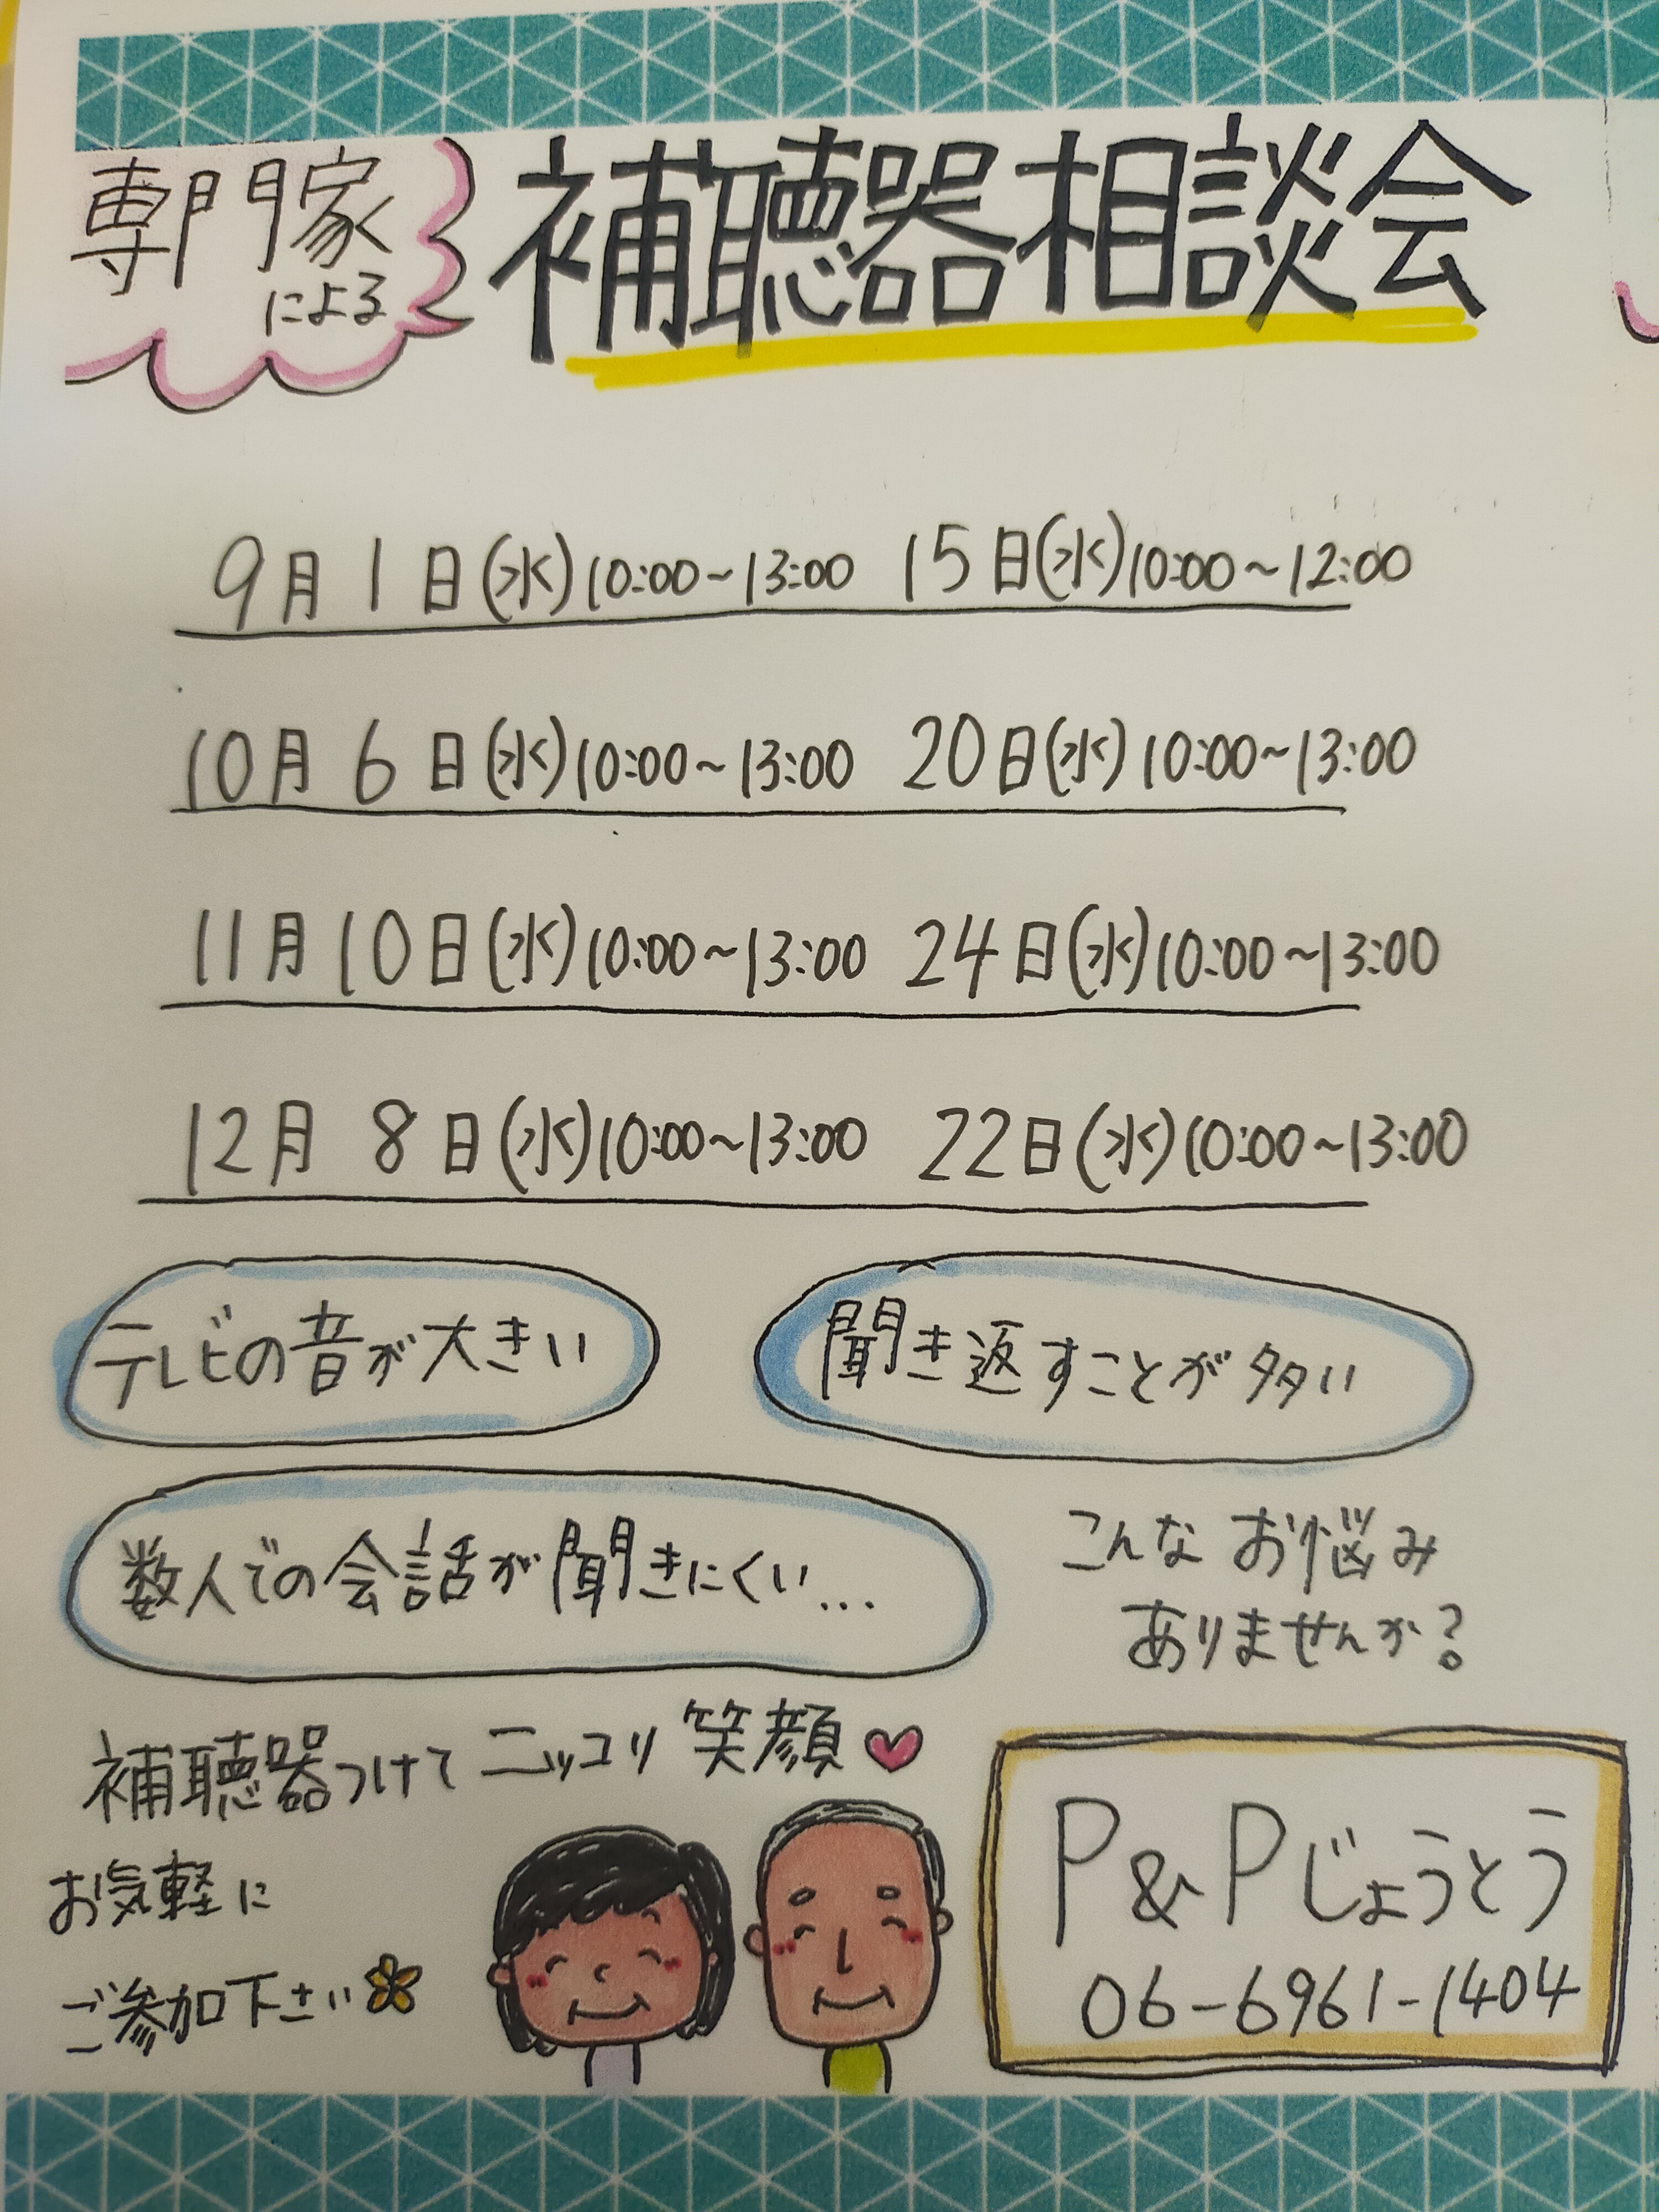 専門家
による
補聴器相談会
9月1日(水)10:00~13:00 15日(水)10:00~12:00
10月6日(水)10:00~13:00 20日(水)10:00~13:00
11月10日(水)10:00~13:00 24日(水)10:00~13:00
12月8日(水)10:00~13:00 22日(水)10:00~13:00
テレビの音が大きい
聞き返すことが多い
数人での会話が聞きにくい...
こんなお悩み
ありませんか?
補聴器つけてニッコリ笑顔
お気軽に
ご参加下さい
P&Pじょうとう
06-6961-1404